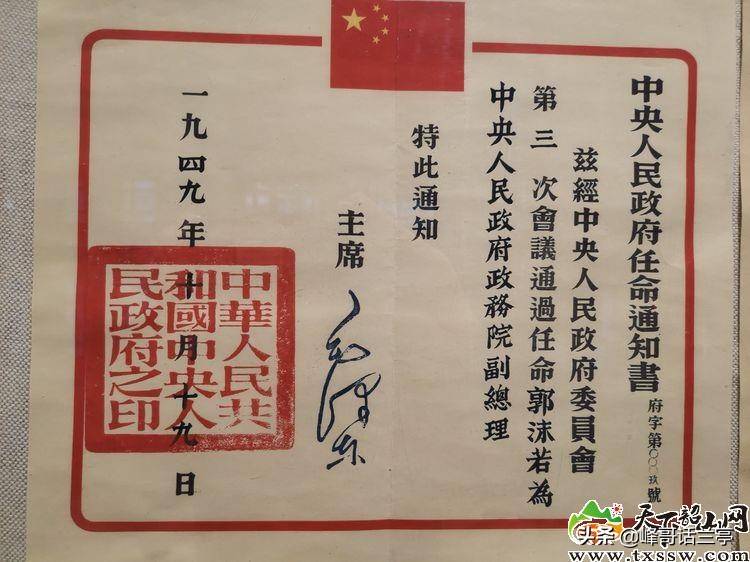 中央人民政府任命通知書
府字第〇〇〇玖號
茲經中央人民政府委員會
第三次會議通過任命郭沫若為
中央人民政府政務院副總理
特此通知
主席
毛澤东
一九四九年十月十九日
中華人民共
和國中央人
民政府之印
天下韶山网
头条 @峰哥话兰亭
www.txssw.com